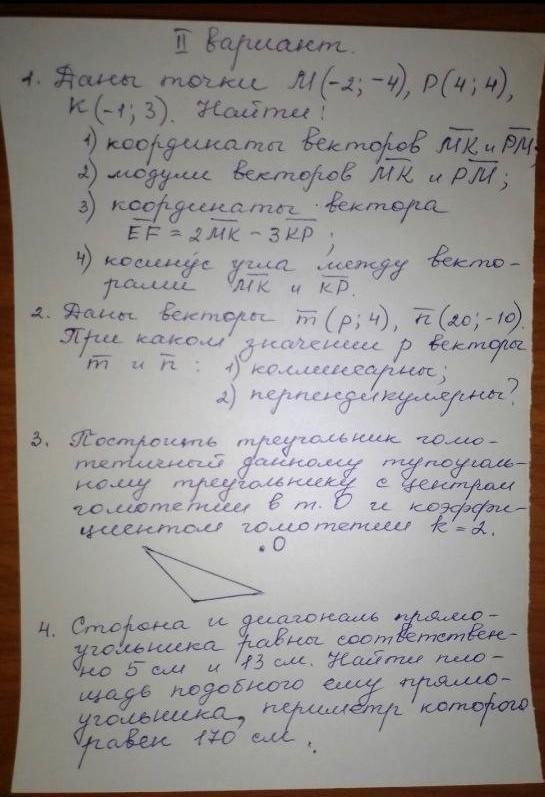 II вариант.
1. Даны точки M(-2; -4), P(4; 4),
K(-1; 3). Найти:
1) координаты векторов MK и PM;
2) модули векторов MK и PM;
3) координаты вектора
EF = 2MK - 3KP;
4) косинус угла между векто-
рами MK и KP.
2. Даны векторы m(p; 4), n(20; -10).
При каком значении p векторы
m и n: 1) коллинеарны;
2) перпендикулярны?
3. Построить треугольник гомо-
тетичный данному тупоуголь-
ному треугольнику с центром
гомотетии в т. O и коэффи-
циентом гомотетии k = 2.
O
4. Сторона и диагональ прямо-
угольника равны соответствен-
но 5 см и 13 см. Найти пло-
щадь подобного ему прямо-
угольника, периметр которого
равен 170 см.